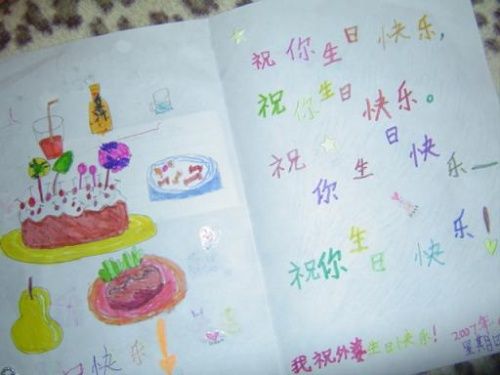 快乐
祝你生日快乐,
祝你生日快乐。
祝你生日快乐—
祝你生日快乐!
我祝外婆生日快乐!
2007年
星期